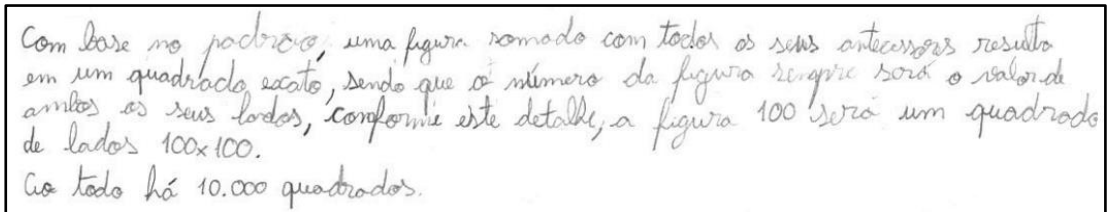 Com base no padrão, uma figura somado com todos os seus antecessores resulta
em um quadrado exato, sendo que o número da figura sempre será o valor de
ambos os seus lados, conforme este detalhe, a figura 100 será um quadrado
de lados 100x100.
Ao todo há 10.000 quadrados.